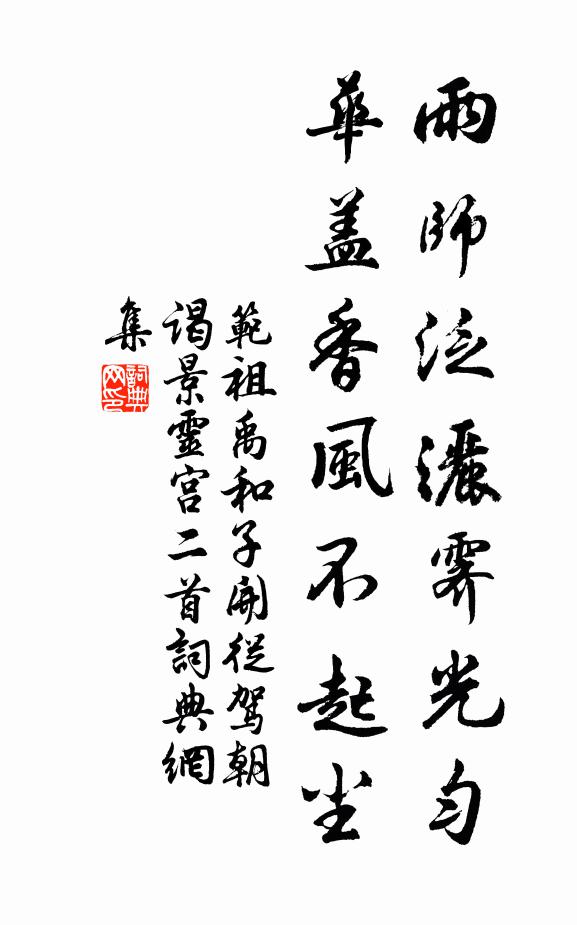 雨師泛灑霽光勻
華盖香風不起尘
範祖禹和子開從駕朝
謁景靈宮二首詞典網
集
詞典
网印